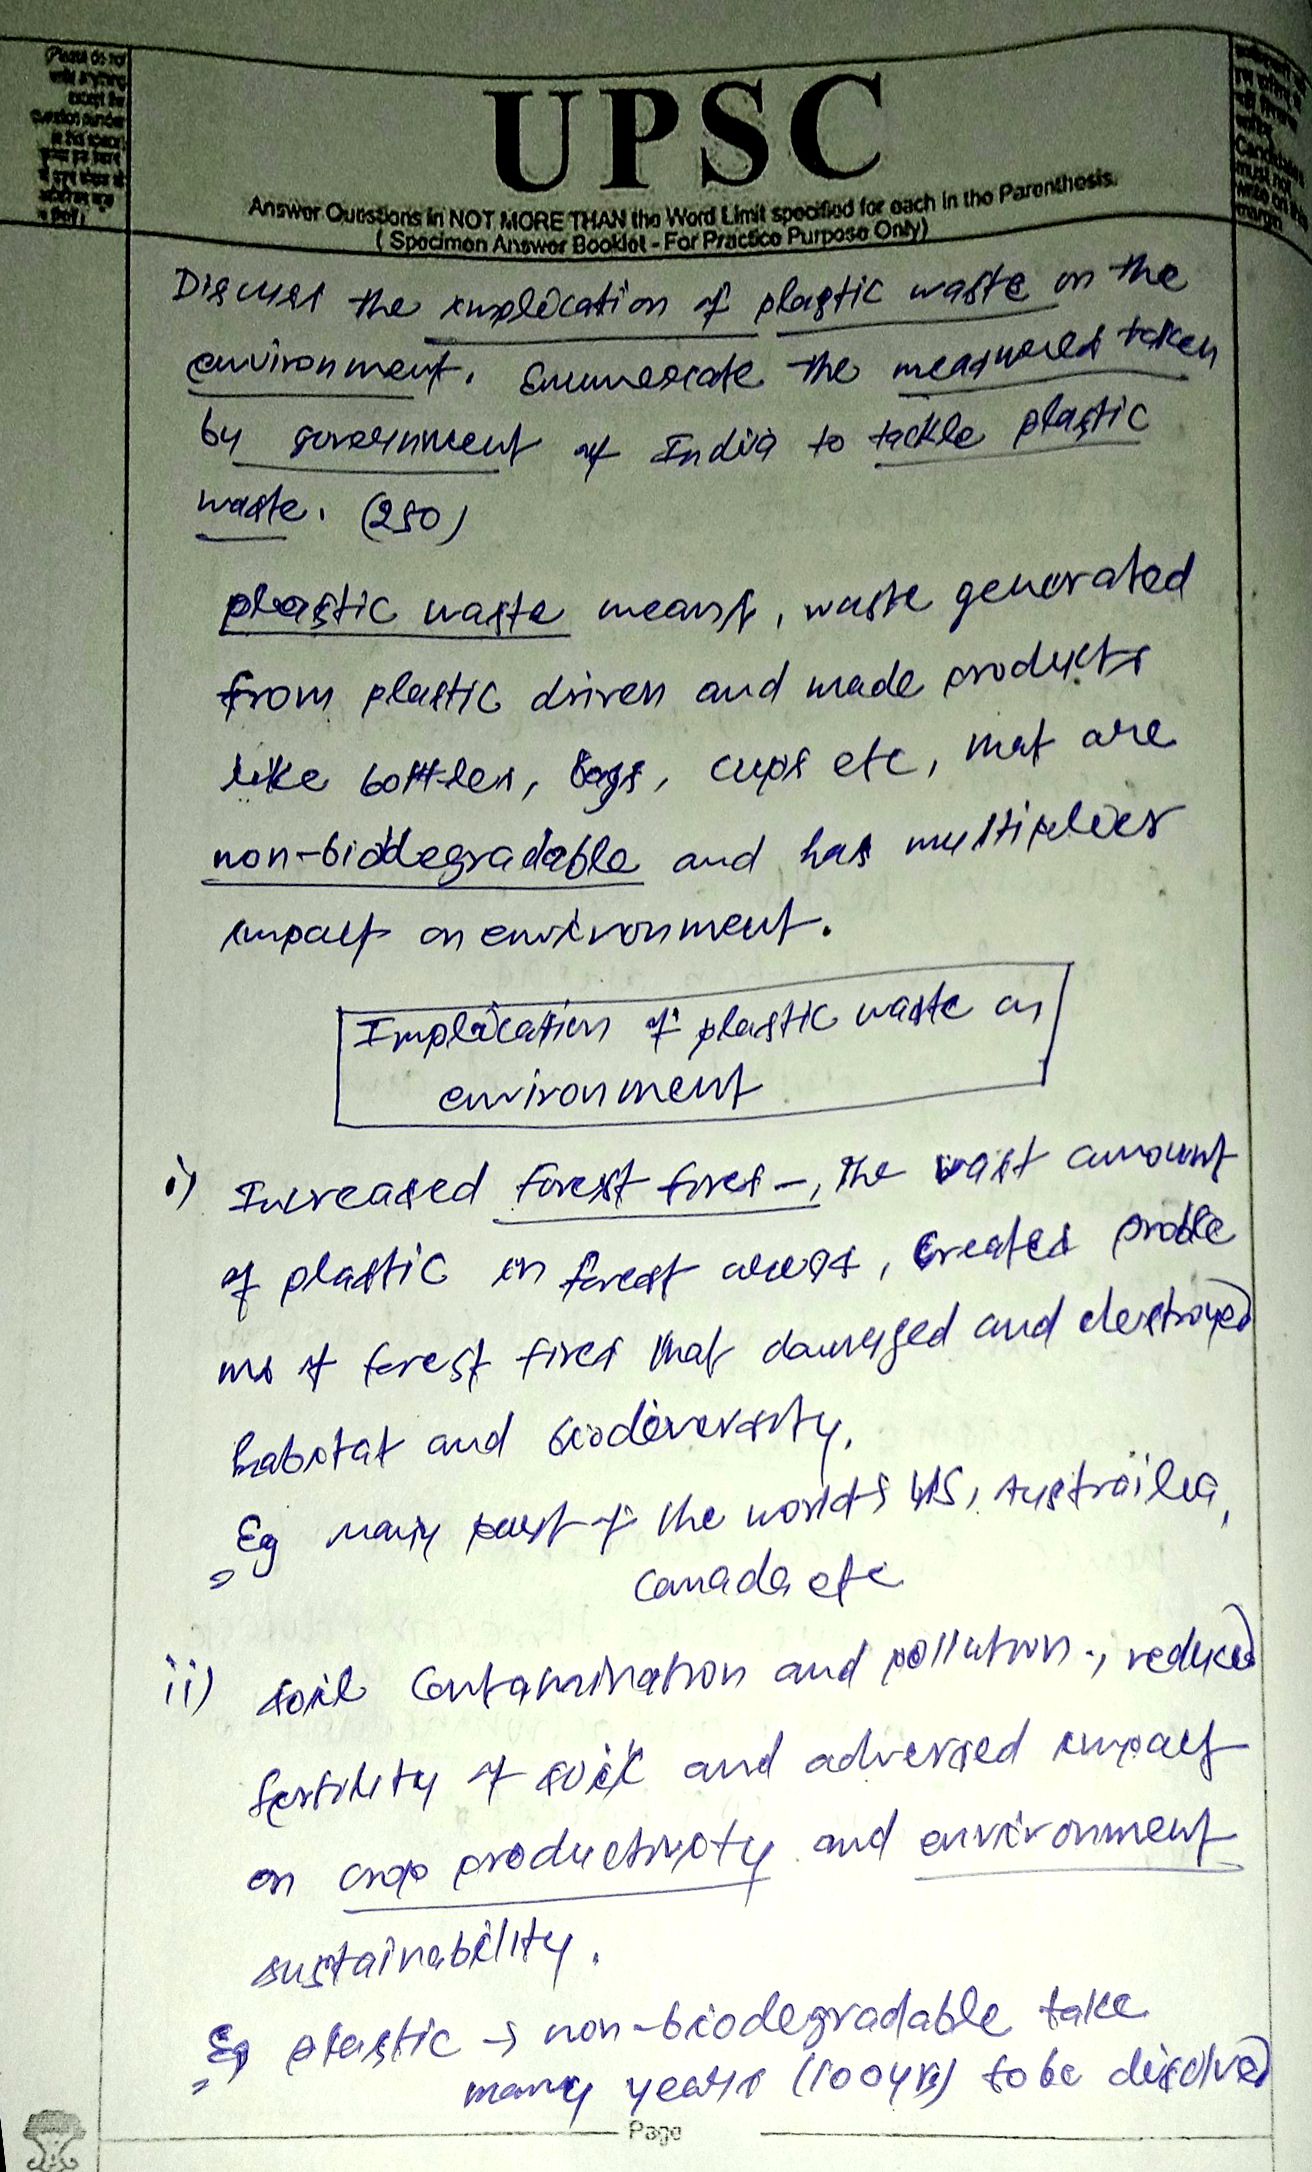 (Please do not
write anything
except the
question number
in this space)
UPSC
Answer Questions in NOT MORE THAN the Word Limit specified for each in the Parenthesis.
( Specimen Answer Booklet - For Practice Purpose Only)
Candidates
must not
write on this
margin
Discuss the implication of plastic waste on the
environment. Enumerate the measures taken
by government of India to tackle plastic
waste. (250)
plastic waste means, waste generated
from plastic driven and made products
like bottles, bags, cups etc, that are
non-biodegradable and has multiplier
impact on environment.
Implication of plastic waste on
environment
i) Increased forest fires -, The vast amount
of plastic in forest areas, created proble
ms of forest fires that damaged and destroyed
habitat and biodiversity.
Eg Many part of the world US, Austrailia,
Canada etc
ii) soil contamination and pollution -, reduced
fertility of soil and adversed impact
on crop productivity and environment
sustainability.
Eg plastic → non-biodegradable take
many years (100yrs) to be disolved
Page